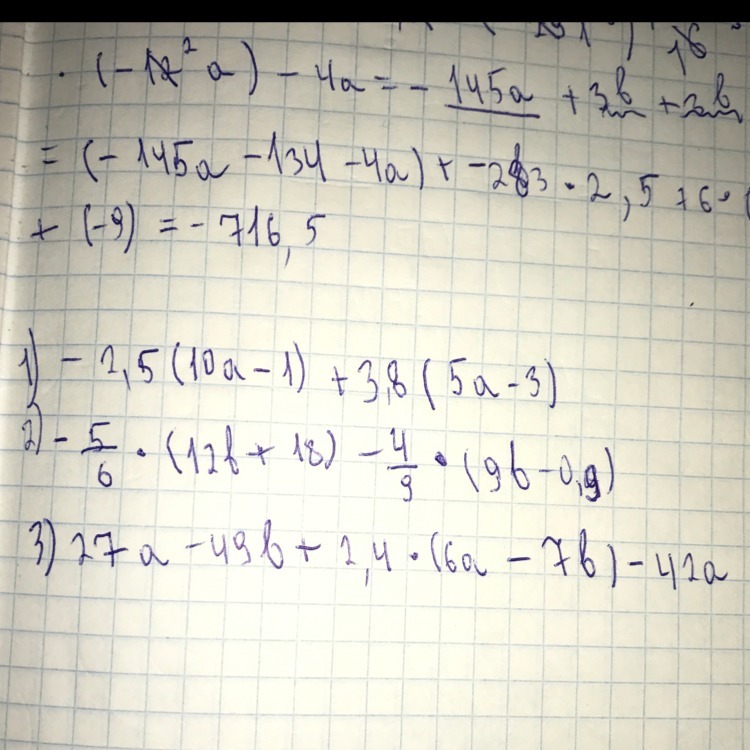 · (-12² a) - 4a = - 145a + 3b + 2b
= (-145a - 134 - 4a) + -283 · 2,5 + 6 · (
+ (-9) = - 716,5
1) - 2,5 (10a - 1) + 3,8 (5a - 3)
2) - 5/6 · (12b + 18) - 4/9 · (9b - 0,9)
3) 27a - 49b + 2,4 · (6a - 7b) - 42a